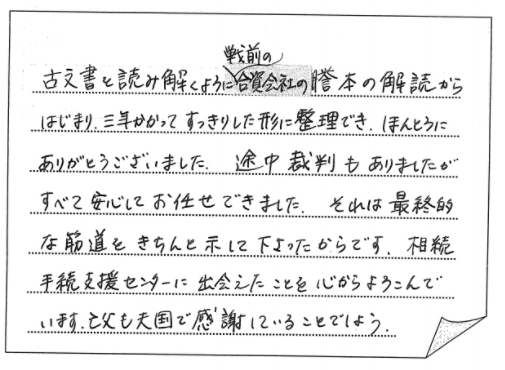 戦前の
古文書を読み解くように合資会社の謄本の解読から
はじまり、三年かかってすっきりした形に整理でき、ほんとうに
ありがとうございました。途中裁判もありましたが
すべて安心してお任せできました。それは最終的
な筋道をきちんと示して下さったからです。相続
手続支援センターに出会えたことを心からよろこんで
います。亡父も天国で感謝していることでしょう。